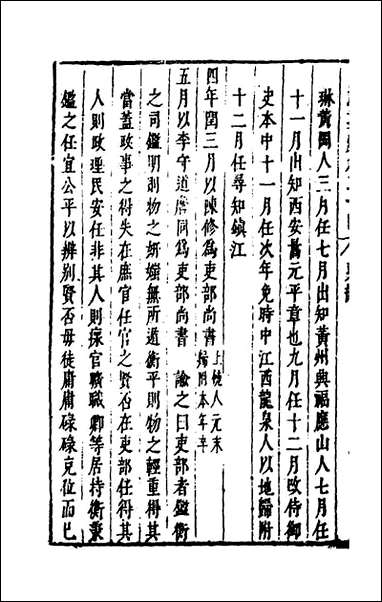 琳黃岡人三月任七月出知黃州典福應山人七月任
十一月出知西安舊元平章也九月任十二月改侍御
史本中十一月任次年免時中江西龍泉人以地歸附
十二月任尋知鎮江
四年閏三月以陳修為吏部尚書上饒人元末歸附本年卒
五月以李守道詹同為吏部尚書 諭之曰吏部者鑑衡
之司鑑明則物之妍媸無所遁衡平則物之輕重得其
當蓋政事之得失在庶官任官之賢否在吏部任得其
人則政理民安任非其人則瘝官曠職卿等居持衡秉
鑑之任宜公平以辨別賢否毋徒庸庸碌碌充位而已